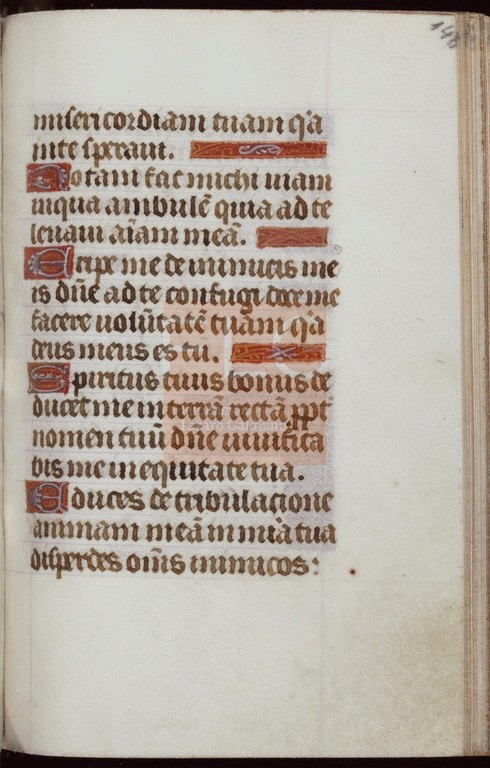 148
misericordiam tuam q̃a
in te speraui.
Notam fac michi uiam
in qua ambulẽ quia ad te
leuaui aĩam meã.
Eripe me de inimicis me
is dñe ad te confugi doce me
facere uolũtatẽ tuam q̃a
deus meus es tu.
Spiritus tuus bonus de
ducet me in terrã rectã ppt̃
nomen tuũ dñe uiuifica
bis me in equitate tua.
Educes de tribulacione
animam meã in mĩa tua
disperdes om̃s inimicos: